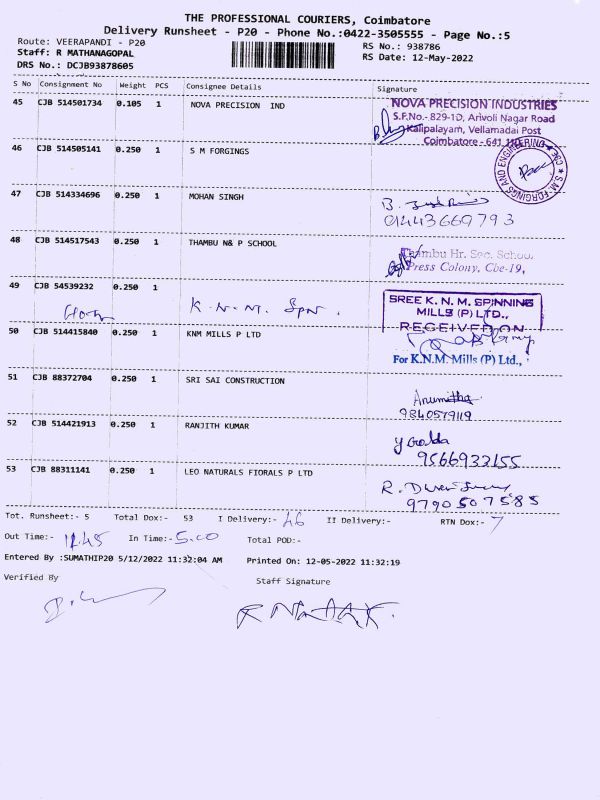 THE PROFESSIONAL COURIERS, Coimbatore
Delivery Runsheet - P20 - Phone No.:0422-3505555 - Page No.:5
Route: VEERAPANDI - P20
RS No.: 938786
Staff: R MATHANAGOPAL
RS Date: 12-May-2022
DRS No.: DCJB93878605
S No Consignment No Weight PCS Consignee Details Signature
45 CJB 514501734 0.105 1 NOVA PRECISION IND
NOVA PRECISION INDUSTRIES
S.F.No.- 829-1D, Arivoli Nagar Road
Kalipalayam, Vellamadai Post
Coimbatore - 641 110
46 CJB 514505141 0.250 1 S M FORGINGS
S.M. FORGINGS AND ENGINEERING CBE
47 CJB 514334696 0.250 1 MOHAN SINGH
01443669793
48 CJB 514517543 0.250 1 THAMBU N& P SCHOOL
Thambu Hr. Sec. School
Press Colony, Cbe-19,
49 CJB 54539232 0.250 1
K.N.M. Spn.
SREE K. N. M. SPINNING
MILLS (P) LTD.,
RECEIVED ON
50 CJB 514415840 0.250 1 KNM MILLS P LTD
For K.N.M. Mills (P) Ltd.,
51 CJB 88372704 0.250 1 SRI SAI CONSTRUCTION
Anumitha
9840579119
52 CJB 514421913 0.250 1 RANJITH KUMAR
9566932155
53 CJB 88311141 0.250 1 LEO NATURALS FIORALS P LTD
9790507585
Tot. Runsheet:- 5 Total Dox:- 53 I Delivery:- 46 II Delivery:- RTN Dox:- 7
Out Time:- 11.45 In Time:- 5.00 Total POD:-
Entered By :SUMATHIP20 5/12/2022 11:32:04 AM Printed On: 12-05-2022 11:32:19
Verified By
Staff Signature